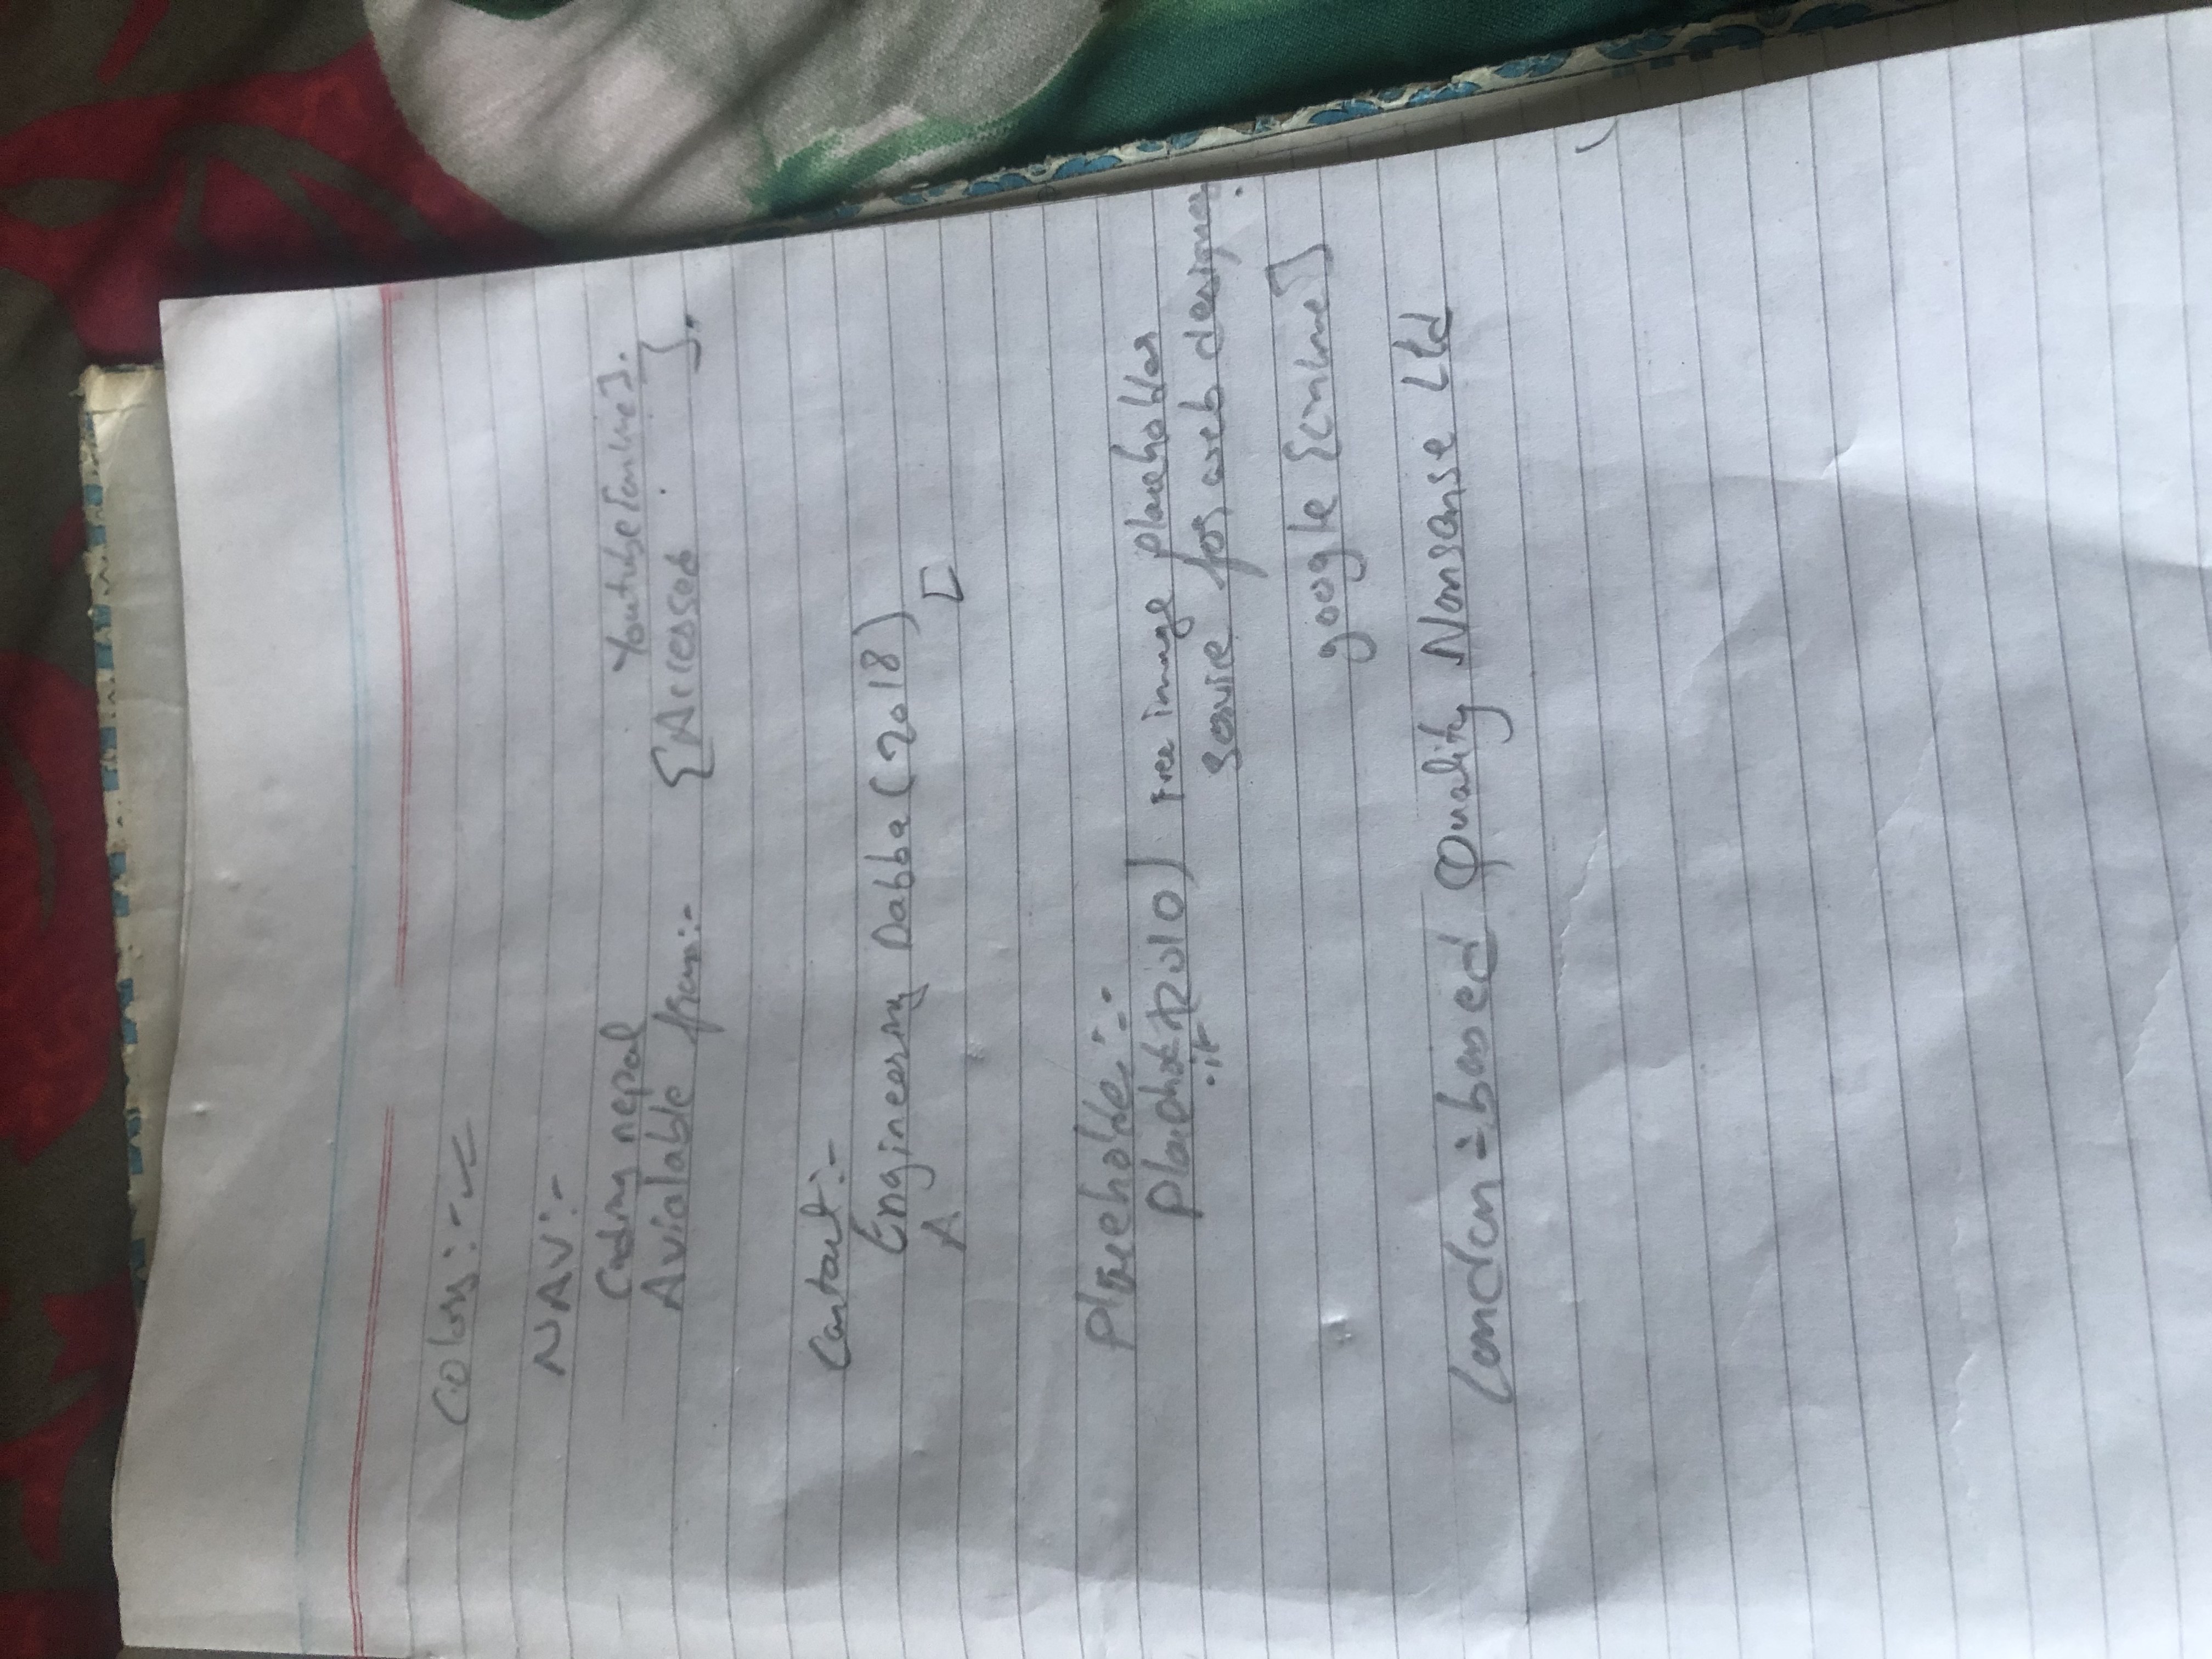 Colors:-
NAV:-
Coding nepal Youtube [online].
Avialable from:- [Accessed ].
Contact:-
Engineering Dabba (2018)
A [
Placeholder:-
Placehold (2010) Free image placeholder
.it service for web designer.
google [online]
London-based Quality Nonsense Ltd